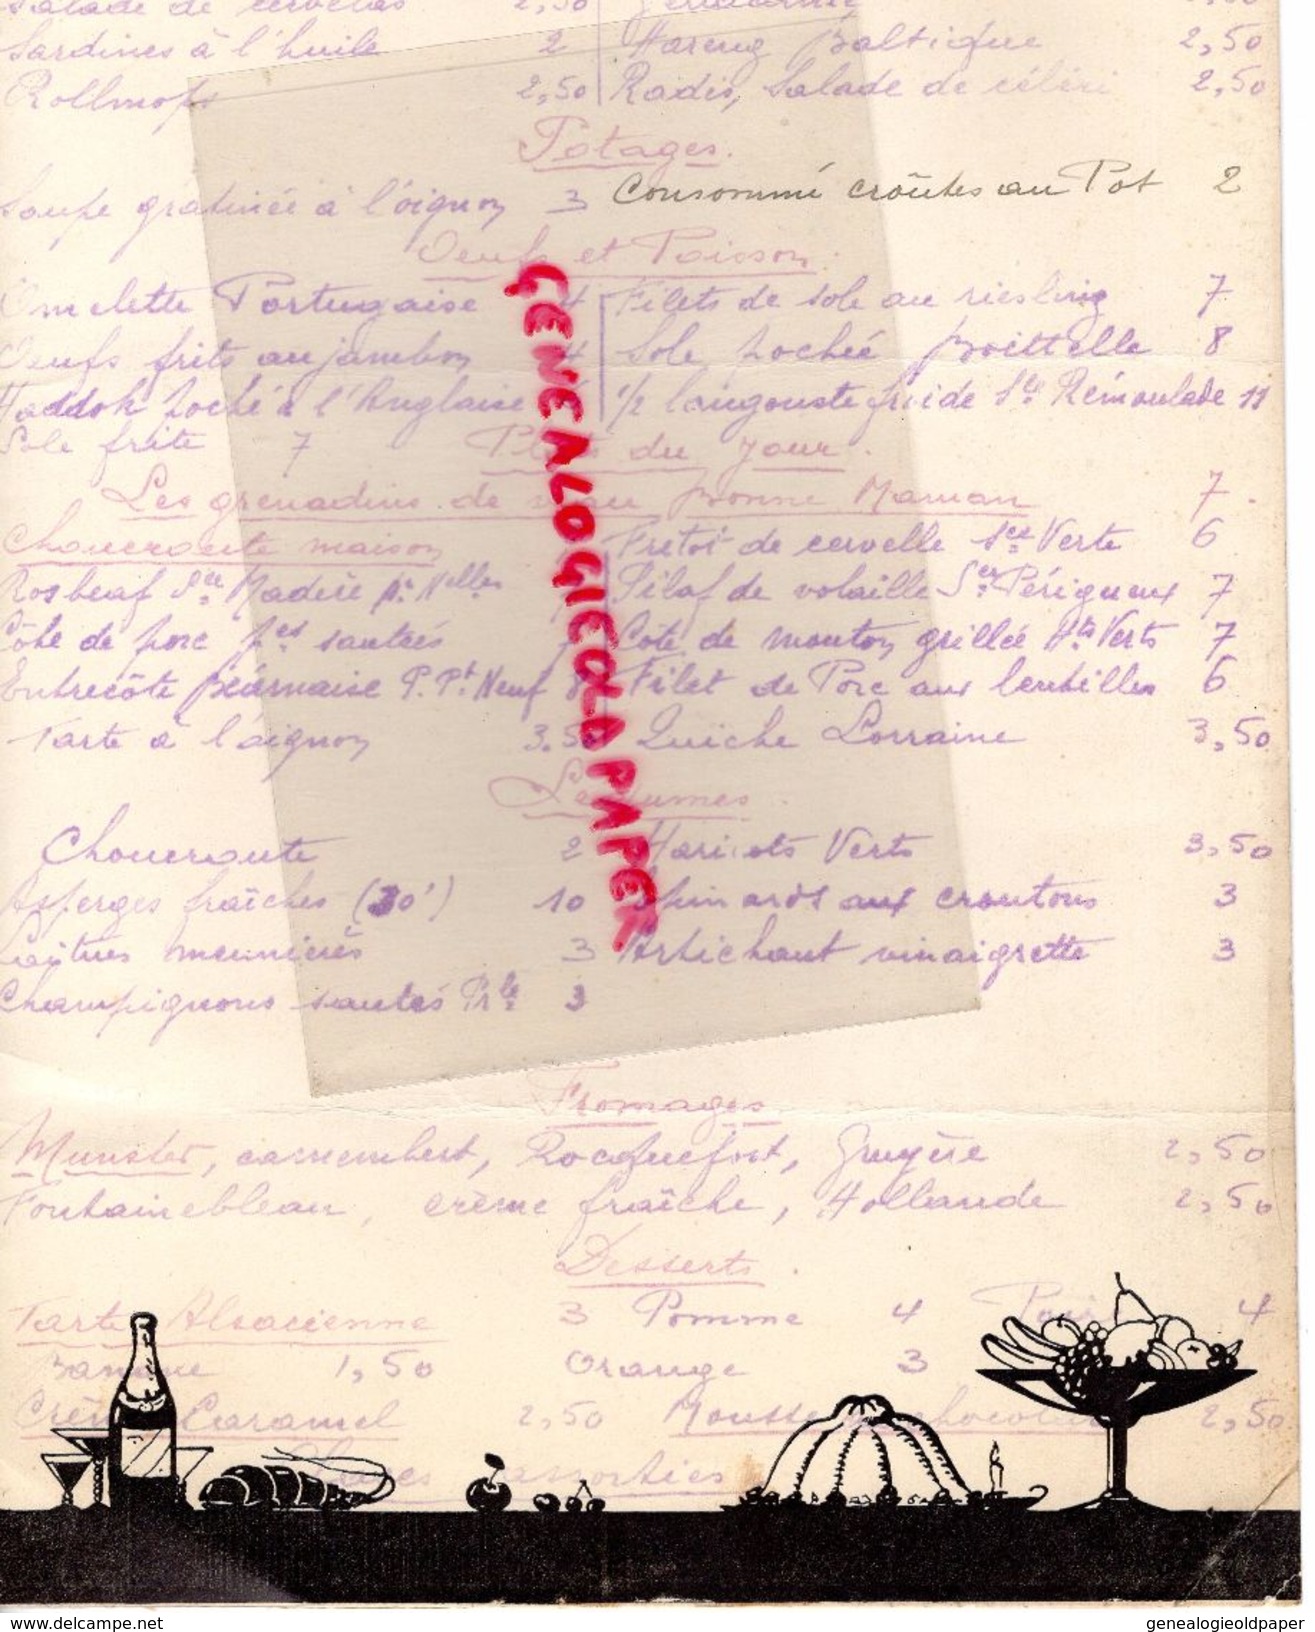 Salade de cervelas 2,50
Sardines à l'huile 2 Hareng Baltique 2,50
Rollmops 2,50 Radis, Salade de céléri 2,50
Potages.
Soupe gratinée à l'oignon 3 Consommé croûtes au Pot 2
Oeufs et Poisson.
Omelette Portugaise 4 Filets de sole au riesling 7
Oeufs frits au jambon 4 Sole pochée Boittelle 8
Haddok poché à l'Anglaise 1/2 langouste froide Sce Rémoulade 11
Sole frite 7 Plats du Jour.
Les grenadins de veau Bonne Maman 7.
Choucroute maison Fritot de cervelle Sce Verte 6
Rosbeaf Sce Madère Nelles Pilaf de volaille Sce Périgueux 7
Côte de porc pes sautées Côte de mouton grillée Hts Verts 7
Entrecôte Béarnaise P. Pt Neuf 8 Filet de Porc aux lentilles 6
Tarte à l'oignon 3.50 Quiche Lorraine 3,50
Légumes.
Choucroute 2 Haricots Verts 3,50
Asperges fraîches (30') 10 Epinards aux croutons 3
Laitues meunières 3 Artichaut vinaigrette 3
Champignons sautés Prle 3
Fromages
Munster, camembert, Rocquefort, Gruyère 2,50
Fontainebleau, crème fraîche, Hollande 2,50
Desserts.
Tarte Alsacienne 3 Pomme 4 Poire 4
Banane 1,50 Orange 3
Crème Caramel 2,50 Mousse chocolat 2,50
Glaces assorties
GENEALOGIEOLDPAPER
www.delcampe.net genealogieoldpaper